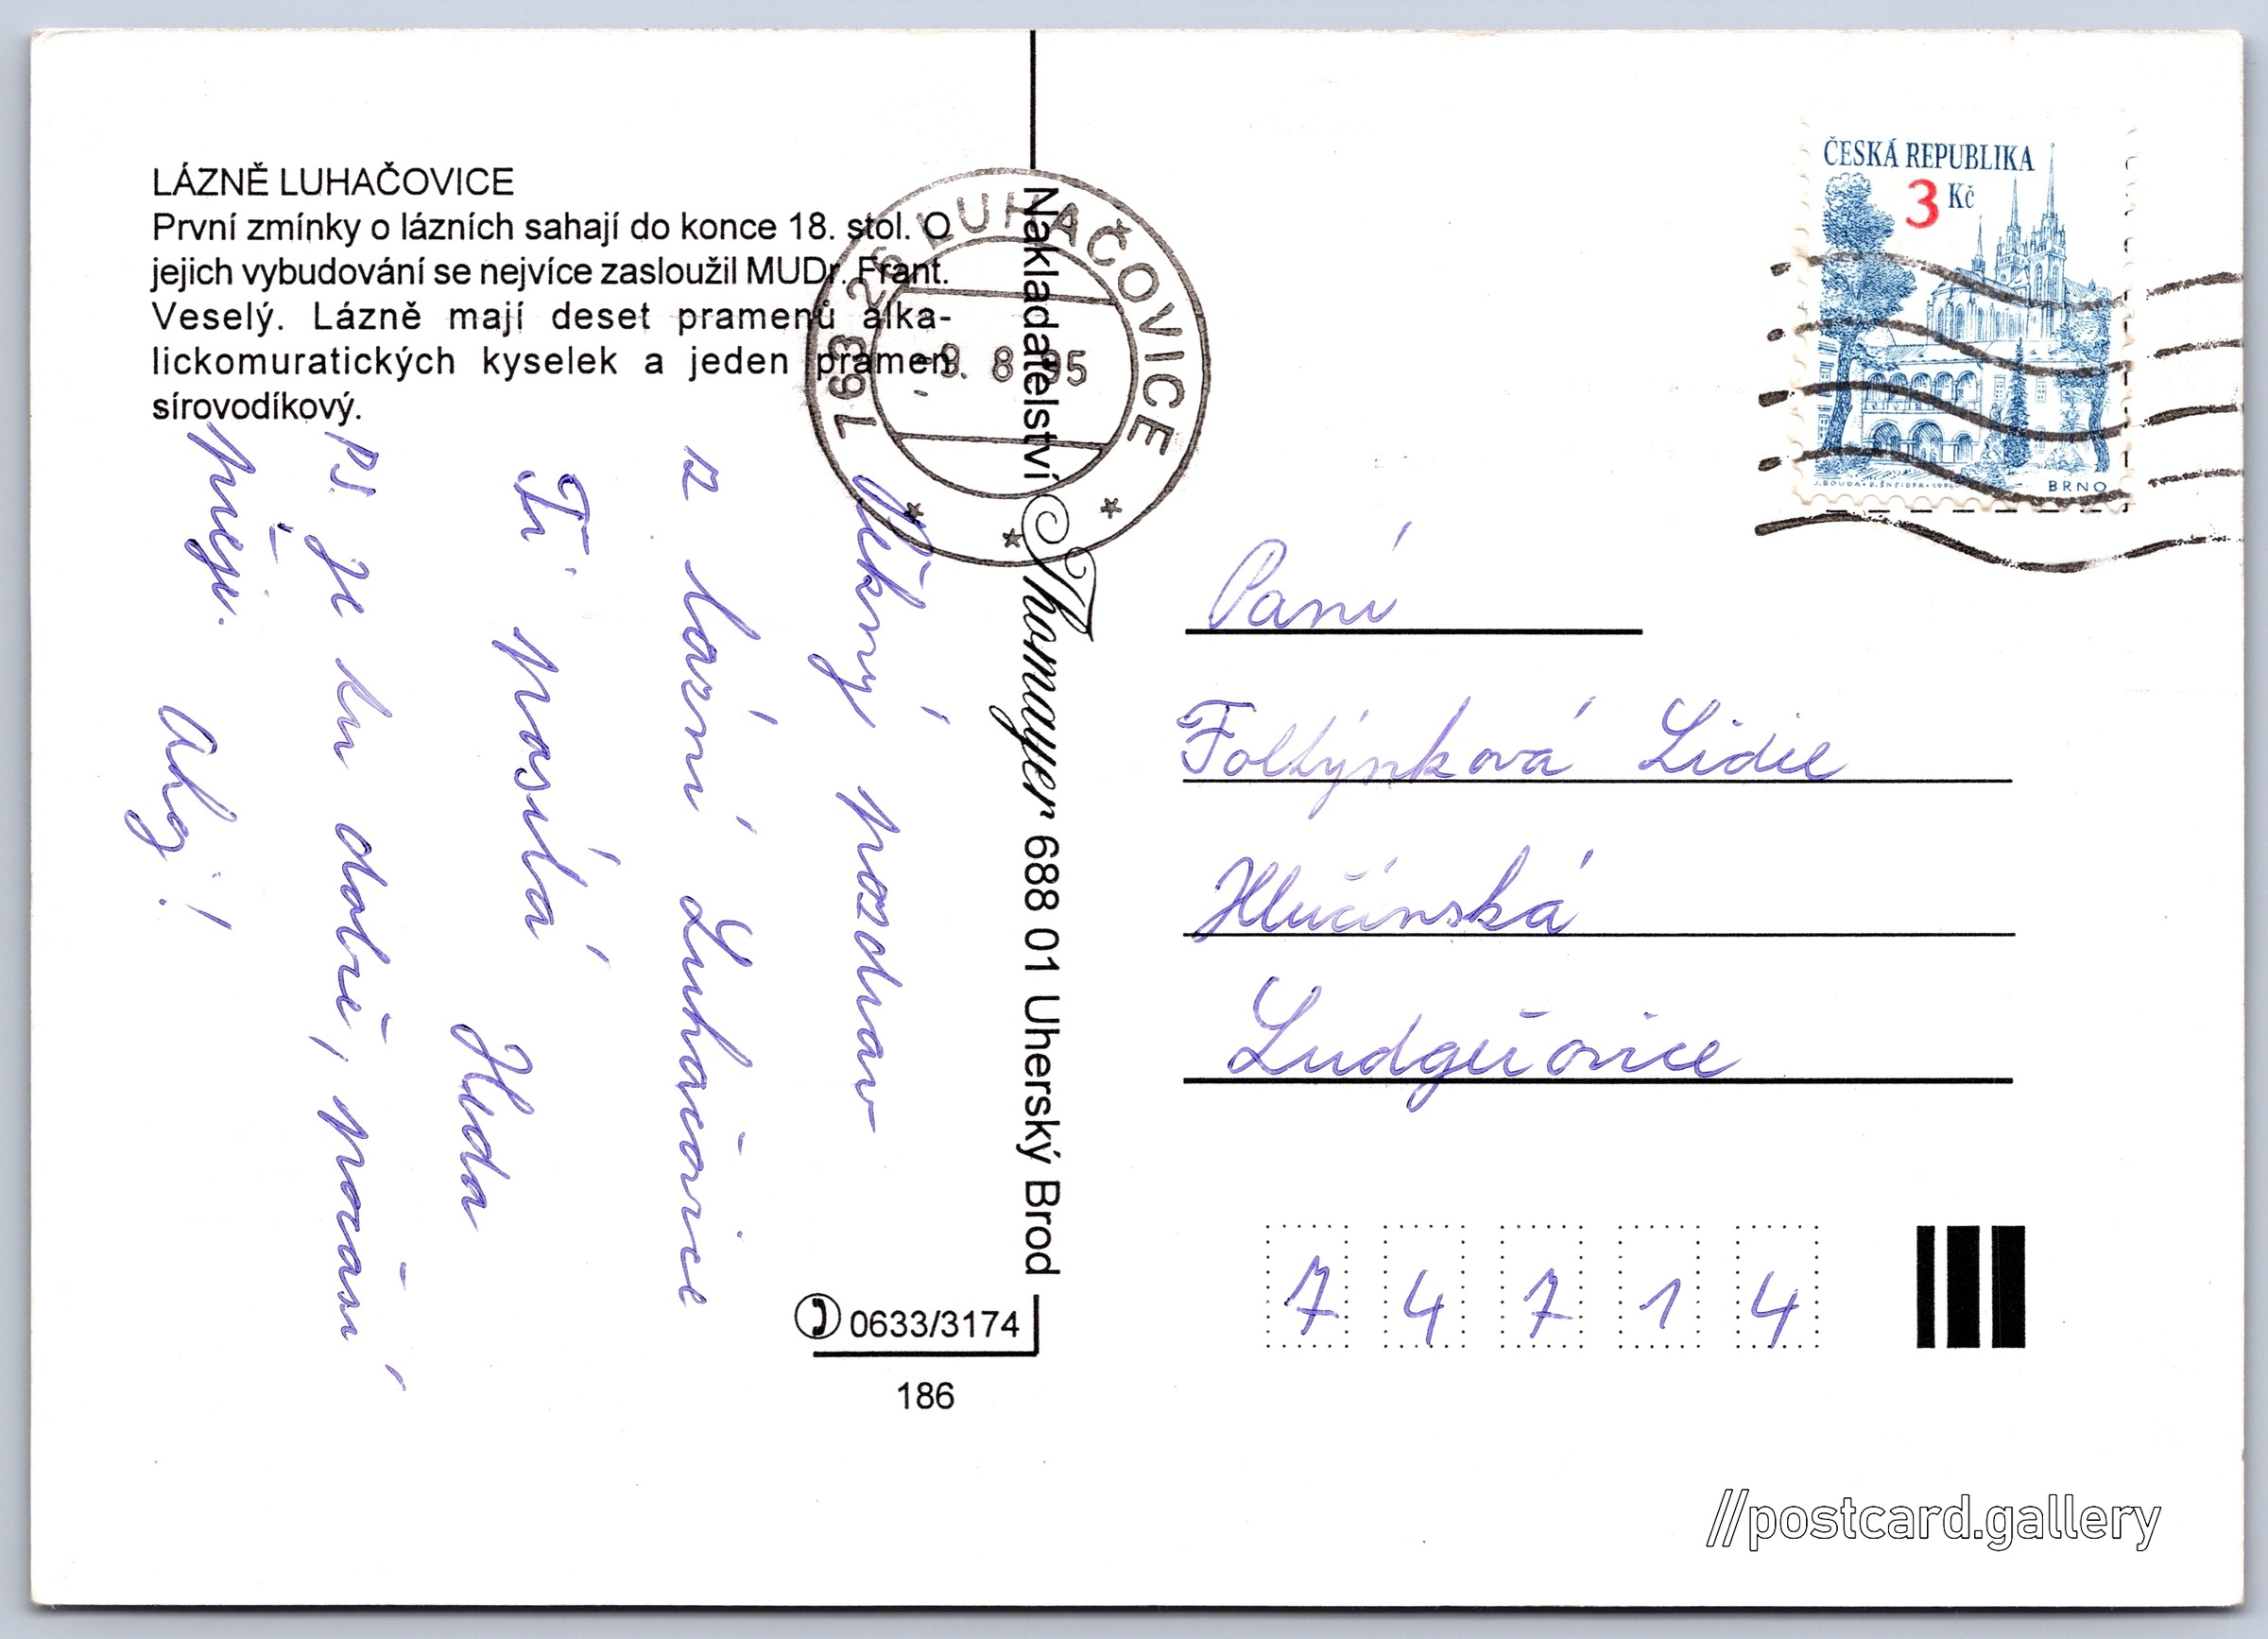 LÁZNĚ LUHAČOVICE
První zmínky o lázních sahají do konce 18. stol. O
jejich vybudování se nejvíce zasloužil MUDr. Frant.
Veselý. Lázně mají deset pramenů alka-
lickomuratických kyselek a jeden pramen
sírovodíkový.
Pěkný pozdrav
z lázní Luhačovice
Ti posílá
Huda
PS. Je tu dobře, počasí
přeje.
Ahoj!
Nakladatelství Thomayer 688 01 Uherský Brod
0633/3174
186
763 26 LUHAČOVICE
-9. 8. 95
ČESKÁ REPUBLIKA
3 Kč
J.BOUDA · B.ŠNEIDER · 1994
BRNO
Paní
Foltýnková Lidie
Hlučínská
Ludgeřovice
74714
//postcard.gallery